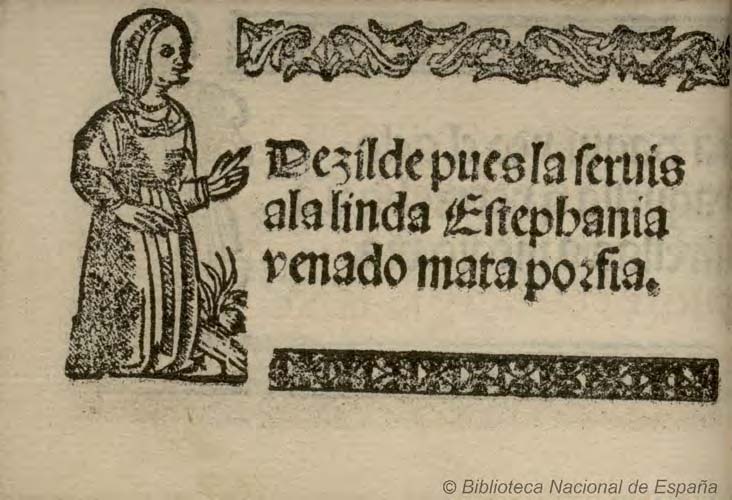 Dezilde pues la seruis
ala linda Estephania
venado mata porfia.
© Biblioteca Nacional de España